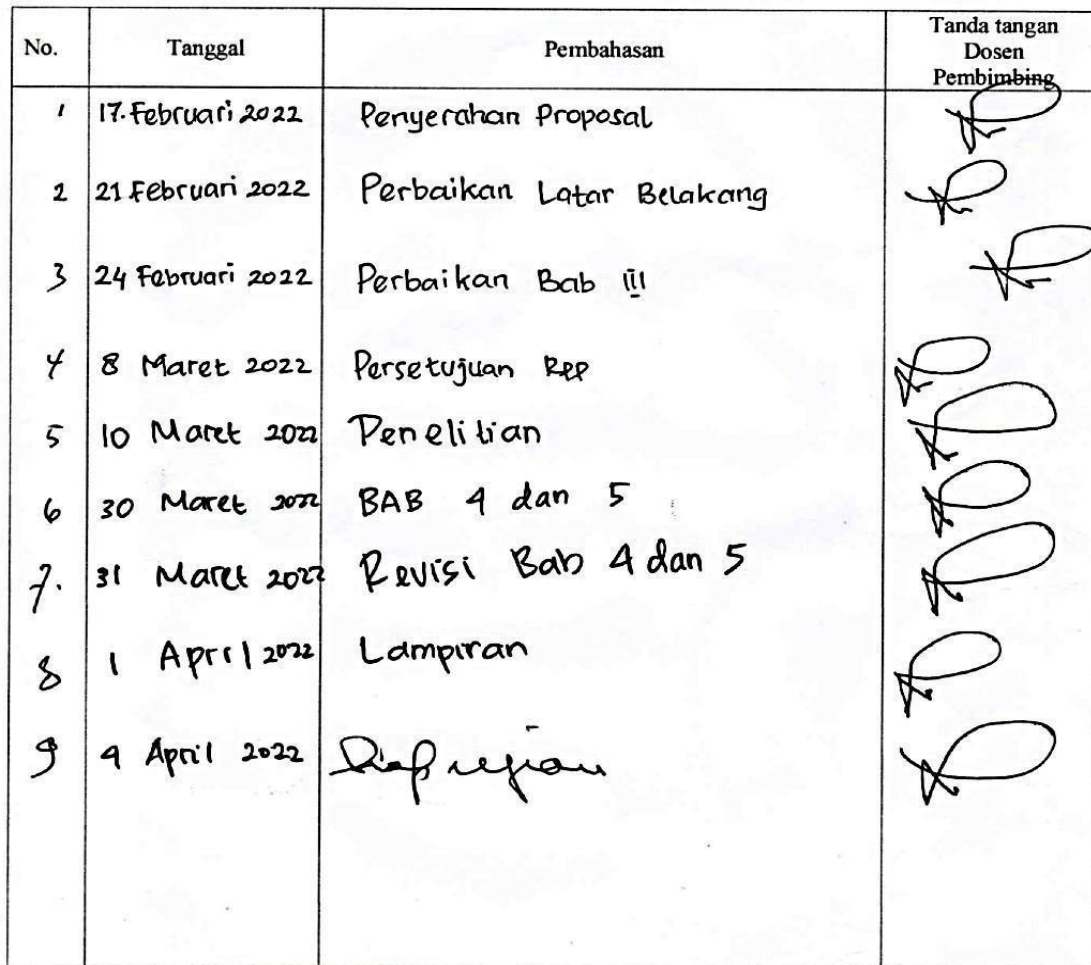 No. Tanggal Pembahasan Tanda tangan
Dosen
Pembimbing
1 17. Februari 2022 Penyerahan Proposal
2 21 Februari 2022 Perbaikan Latar Belakang
3 24 Februari 2022 Perbaikan Bab III
4 8 Maret 2022 Persetujuan RPP
5 10 Maret 2022 Penelitian
6 30 Maret 2022 BAB 4 dan 5
7. 31 Maret 2022 Revisi Bab 4 dan 5
8 1 April 2022 Lampiran
9 4 April 2022